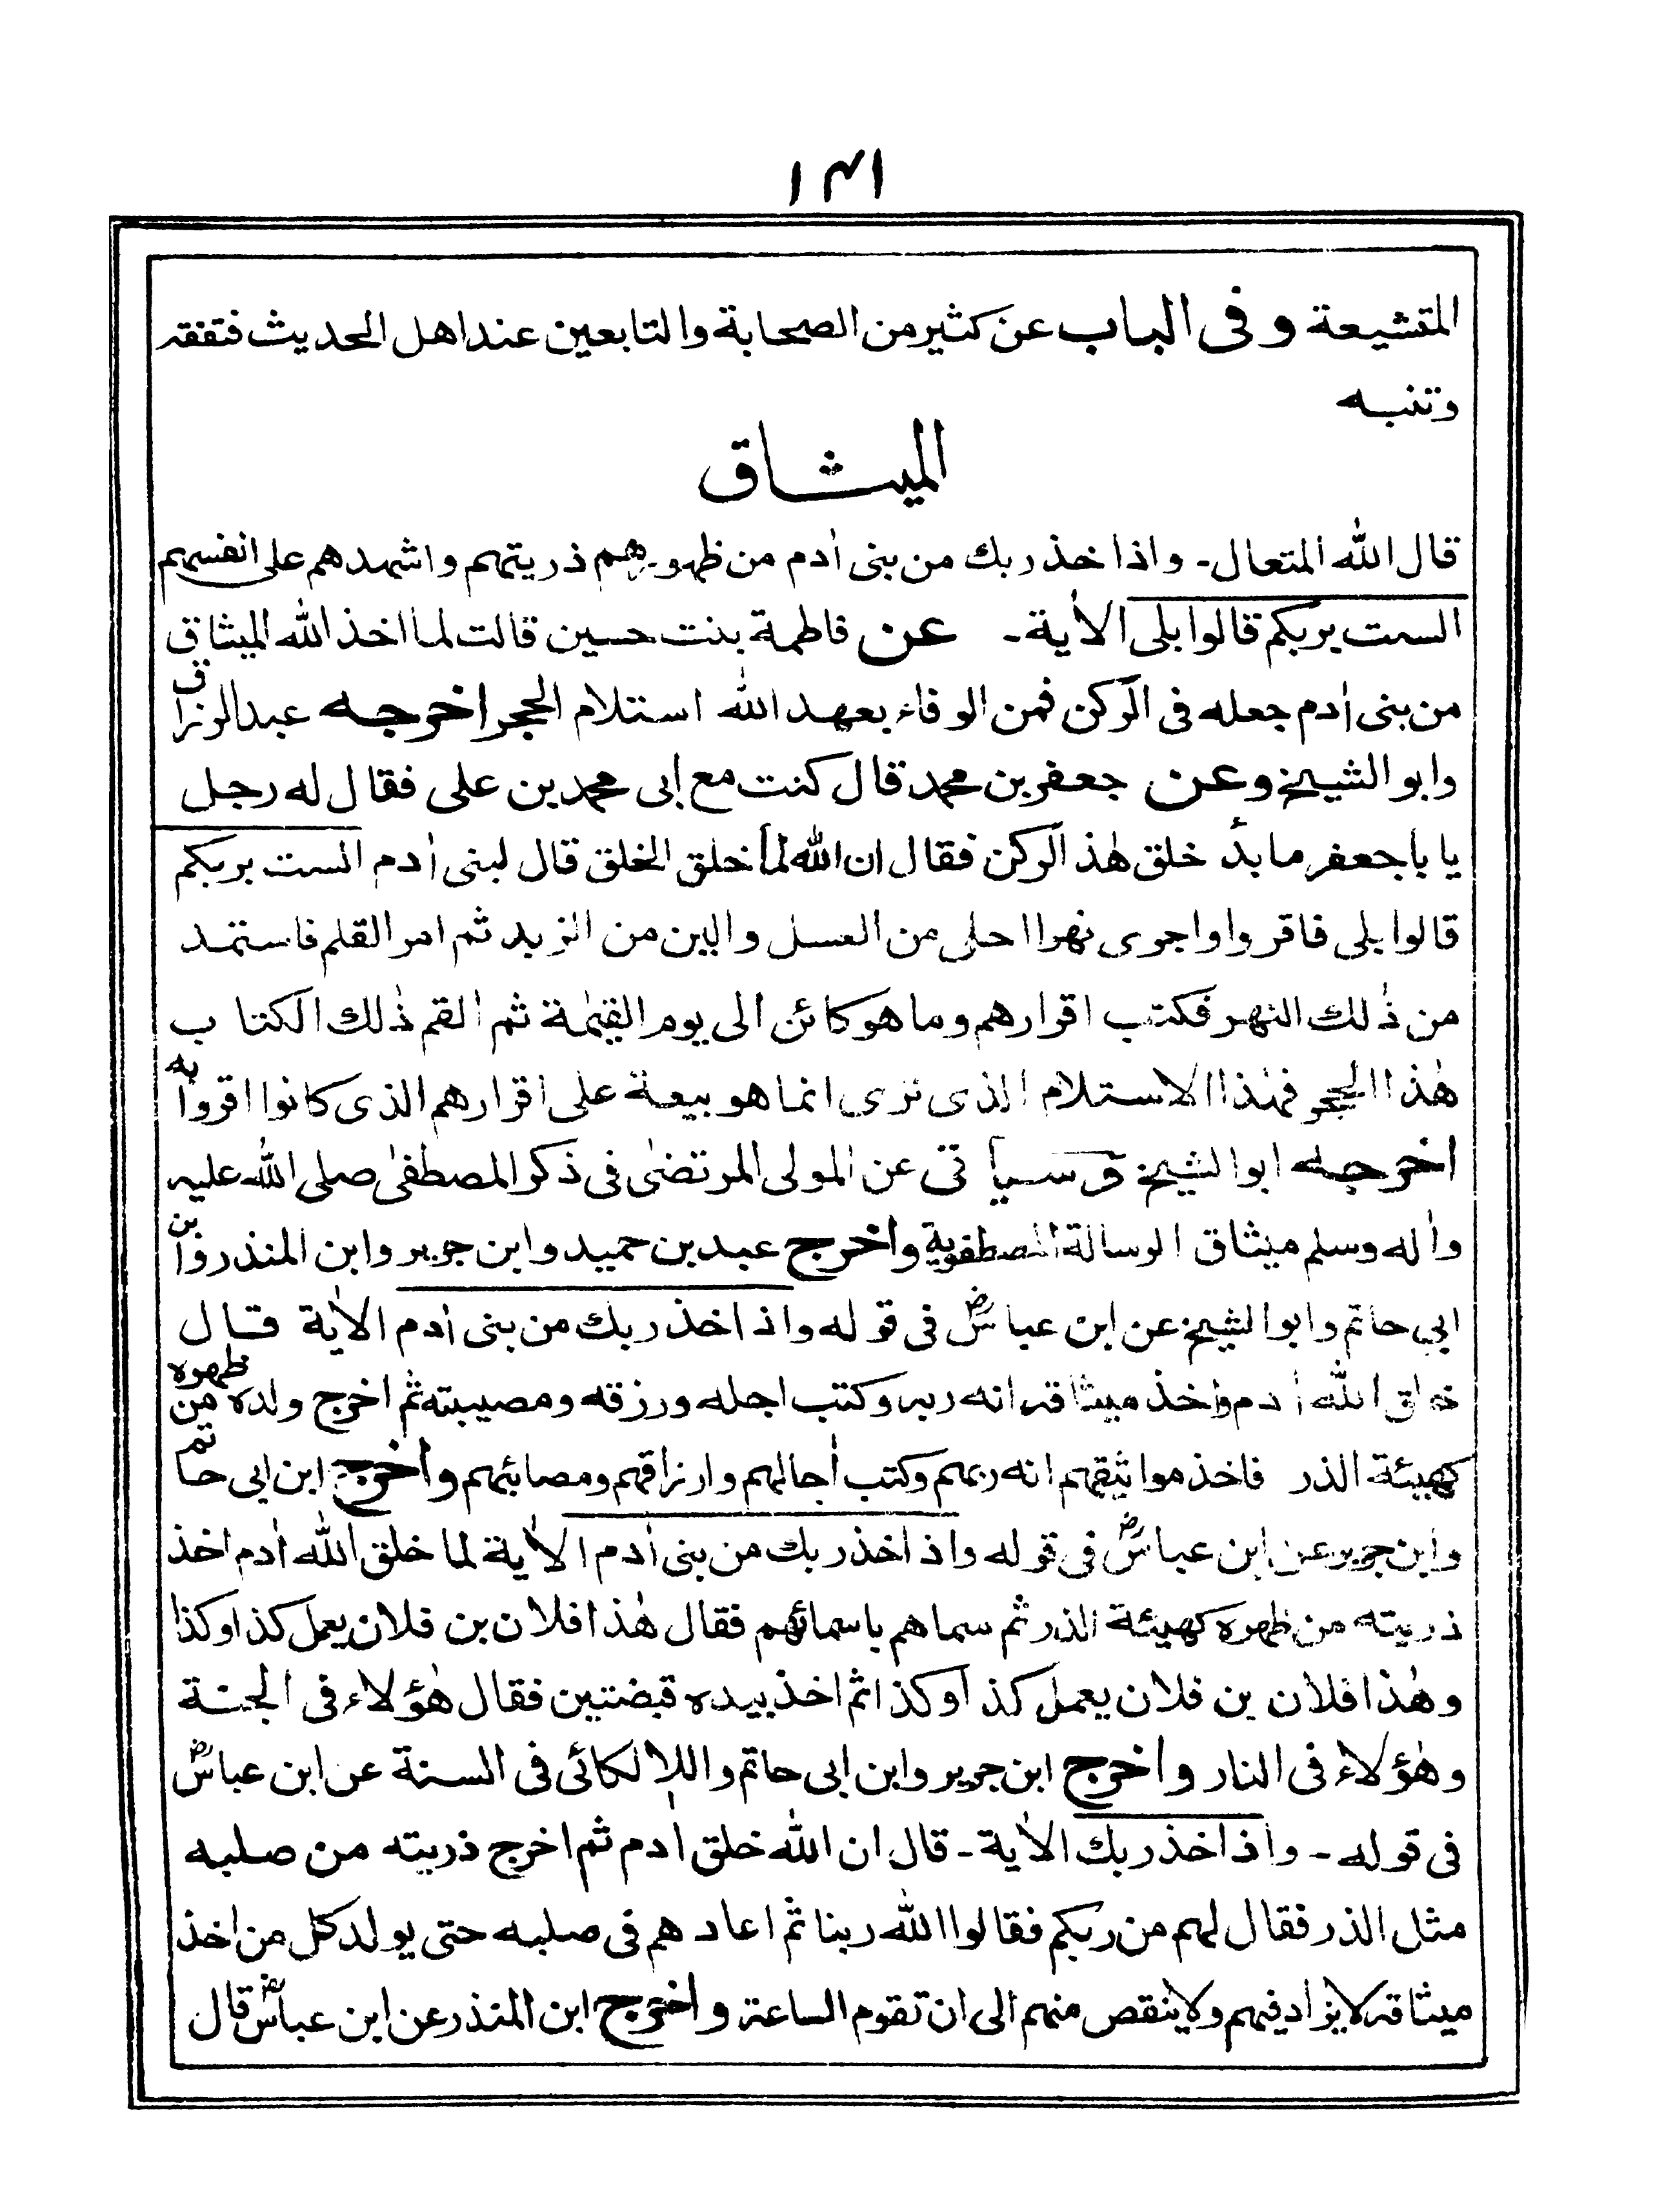 ١٣١
المتشيعة وفى الباب عن كثير من الصحابة والتابعين عند اهل الحديث فتفقه
وتنبه
الميثاق
قال الله المتعال۔ واذ اخذ ربك من بنى اٰدم من ظهورهم ذريتهم واشهدهم على انفسهم
الست بربكم قالوا بلى الاٰية۔ عن فاطمة بنت حسين قالت لما اخذ الله الميثاق
من بنى اٰدم جعله فى الركن فمن الوفاء بعهد الله استلام الحجر اخرجه عبد الرزاق
وابو الشيخ وعن جعفر بن محمد قال كنت مع ابى محمد بن على فقال له رجل
يا با جعفر ما بدأ خلق هٰذ الركن فقال ان الله لما خلق الخلق قال لبنى اٰدم الست بربكم
قالوا بلى فاقروا واجرى نهرا احلى من العسل والين من الزبد ثم امر القلم فاستمد
من ذٰلك النهر فكتب اقرارهم وما هو كائن الى يوم القيٰمة ثم القم ذٰلك الكتاب
هٰذا الحجر فهٰذا الاستلام الذى ترى انما هو بيعة على اقرارهم الذى كانوا اقروا به
اخرجه ابو الشيخ وسيأتى عن المولى المرتضىٰ فى ذكر المصطفىٰ صلى الله عليه
واٰله وسلم ميثاق الرسالة المصطفوية واخرج عبد بن حميد وابن جرير وابن المنذر وابن
ابى حاتم وابو الشيخ عن ابن عباسؓ فى قوله واذ اخذ ربك من بنى اٰدم الاٰية قال
خلق الله اٰدم واخذ ميثاقه انه ربه وكتب اجله ورزقه ومصيبته ثم اخرج ولده من ظهوره
كهيئة الذر فاخذ مواثيقهم انه ربهم وكتب اٰجالهم وارزاقهم ومصائبهم واخرج ابن ابى حاتم
وابن جرير عن ابن عباسؓ فى قوله واذ اخذ ربك من بنى اٰدم الاٰية لما خلق الله اٰدم اخذ
ذريته من ظهره كهيئة الذر ثم سماهم باسمائهم فقال هٰذا فلان بن فلان يعمل كذا وكذا
وهٰذا فلان بن فلان يعمل كذا وكذا ثم اخذ بيده قبضتين فقال هٰؤلاء فى الجنة
وهٰؤلاء فى النار واخرج ابن جرير وابن ابى حاتم واللالكائى فى السنة عن ابن عباسؓ
فى قوله۔ واذ اخذ ربك الاٰية۔ قال ان الله خلق اٰدم ثم اخرج ذريته من صلبه
مثل الذر فقال لهم من ربكم فقالوا الله ربنا ثم اعادهم فى صلبه حتى يولد كل من اخذ
ميثاقه لا يزاد فيهم ولا ينقص منهم الى ان تقوم الساعة واخرج ابن المنذر عن ابن عباسؓ قال